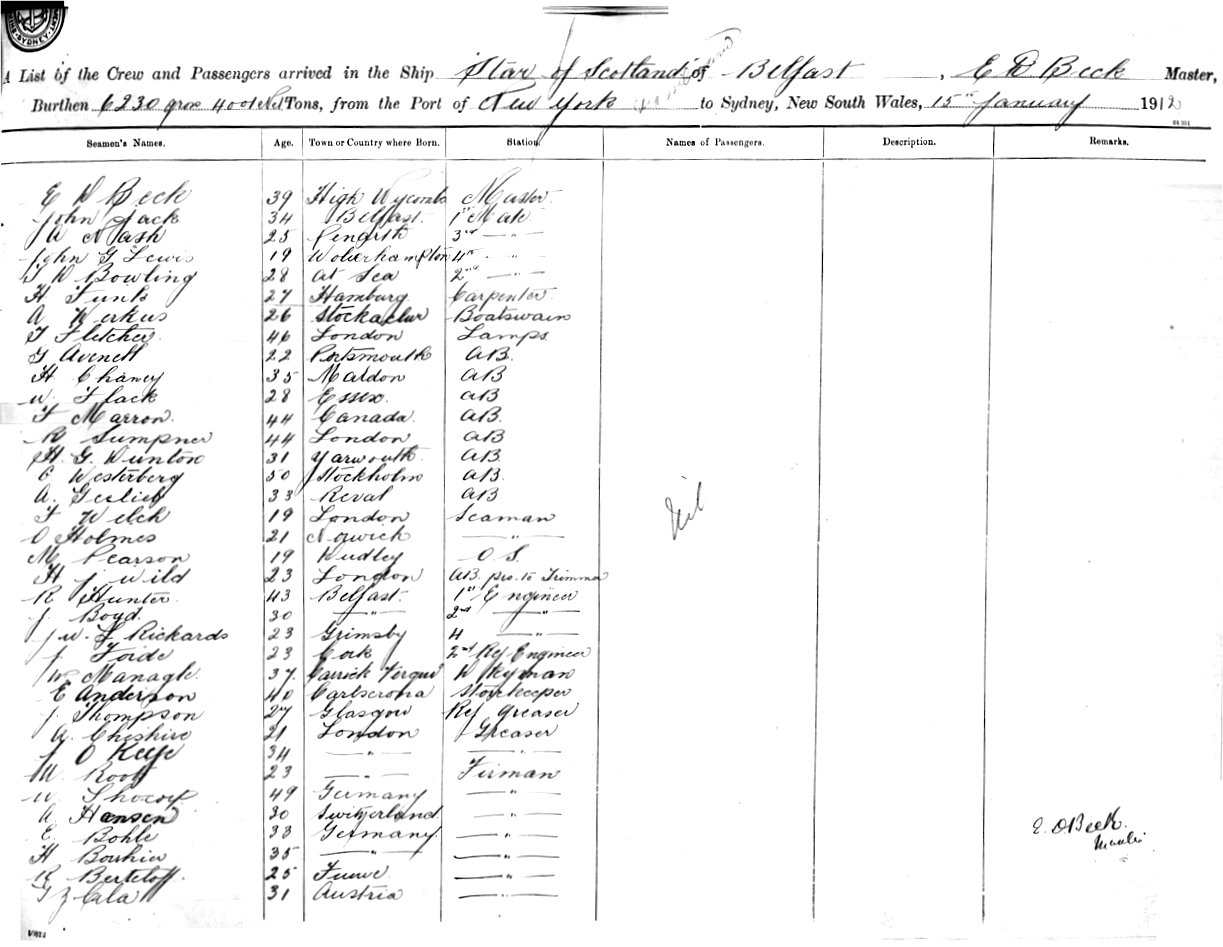 A List of the Crew and Passengers arrived in the Ship Star of Scotland of Belfast, E D Beck Master,
Burthen 6230 gross 4004 Net Tons, from the Port of New York to Sydney, New South Wales, 15th January 1912
Seamen's Names. Age. Town or Country where Born. Station Names of Passengers. Description. Remarks.
E D Beck 39 High Wycomb Master
John Jack 34 Belfast. 1st Mate
A Nash 25 Penarth 3rd — " —
John G Lewis 19 Wolverhampton 4th — " —
T D Bowling 28 At Sea 2nd — " —
H Funk 27 Hamburg Carpenter
A Werkus 26 Boatswain
T Fletcher 46 London Lamps
G Avenell 22 Portsmouth AB.
H Chaney 35 Maldon AB
W Flack 28 Essex. AB
T Marron. 44 Canada. AB.
R Sumpner 44 London AB
H. G. Dunton 31 Yarmouth AB.
C Westerberg 50 Stockholm AB.
A. 33 Reval AB
T Welch 19 London Seaman
O Holmes 21 Norwich — " —
M Pearson 19 Dudley O S.
H J Wild 23 London AB. pro. to Trimma
R Hunter 43 Belfast. 1st Engineer
J. Boyd. 30 — " — 2nd — " —
J W. F Rickards 23 Grimsby 4 — " —
J 23 Cork 2nd Ref Engineer
W Managh. 37. Carrick Fergus D Kyman
E Anderson 40 Carlscrona Storekeeper
J. Thompson 27 Glasgow Ref Greaser
A. Cheshire 21 London Greaser
J O Keefe 34 — " — — " —
W Root 23 — " — Firman
W 49 Germany — " —
A Hansen 30 Switzerland. — " —
E. Bohle 33 Germany. — " —
H 35 — " — — " —
R 25 — " —
G Zcala 31 Austria — " —
Nil
E. D Beck.